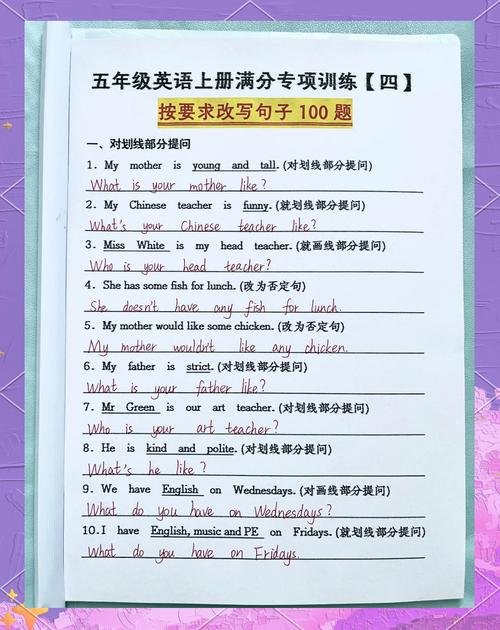 五年级英语上册满分专项训练【四】
按要求改写句子100题
一、对划线部分提问
1. My mother is young and tall. (对划线部分提问)
What is your mother like?
2. My Chinese teacher is funny. (就划线部分提问)
What's your Chinese teacher like?
3. Miss White is my head teacher. (就画线部分提问)
Who is your head teacher?
4. She has some fish for lunch. (改为否定句)
She doesn't have any fish for lunch.
5. My mother would like some chicken. (改为否定句)
My mother wouldn't like any chicken.
6. My father is strict. (对划线部分提问)
What is your father like?
7. Mr Green is our art teacher. (对划线部分提问)
Who is your art teacher?
8. He is kind and polite. (对划线部分提问)
What's he like?
9. We have English on Wednesdays. (对画线部分提问)
What do you have on Wednesdays?
10. I have English, music and PE on Fridays. (就划线部分提问)
What do you have on Fridays.